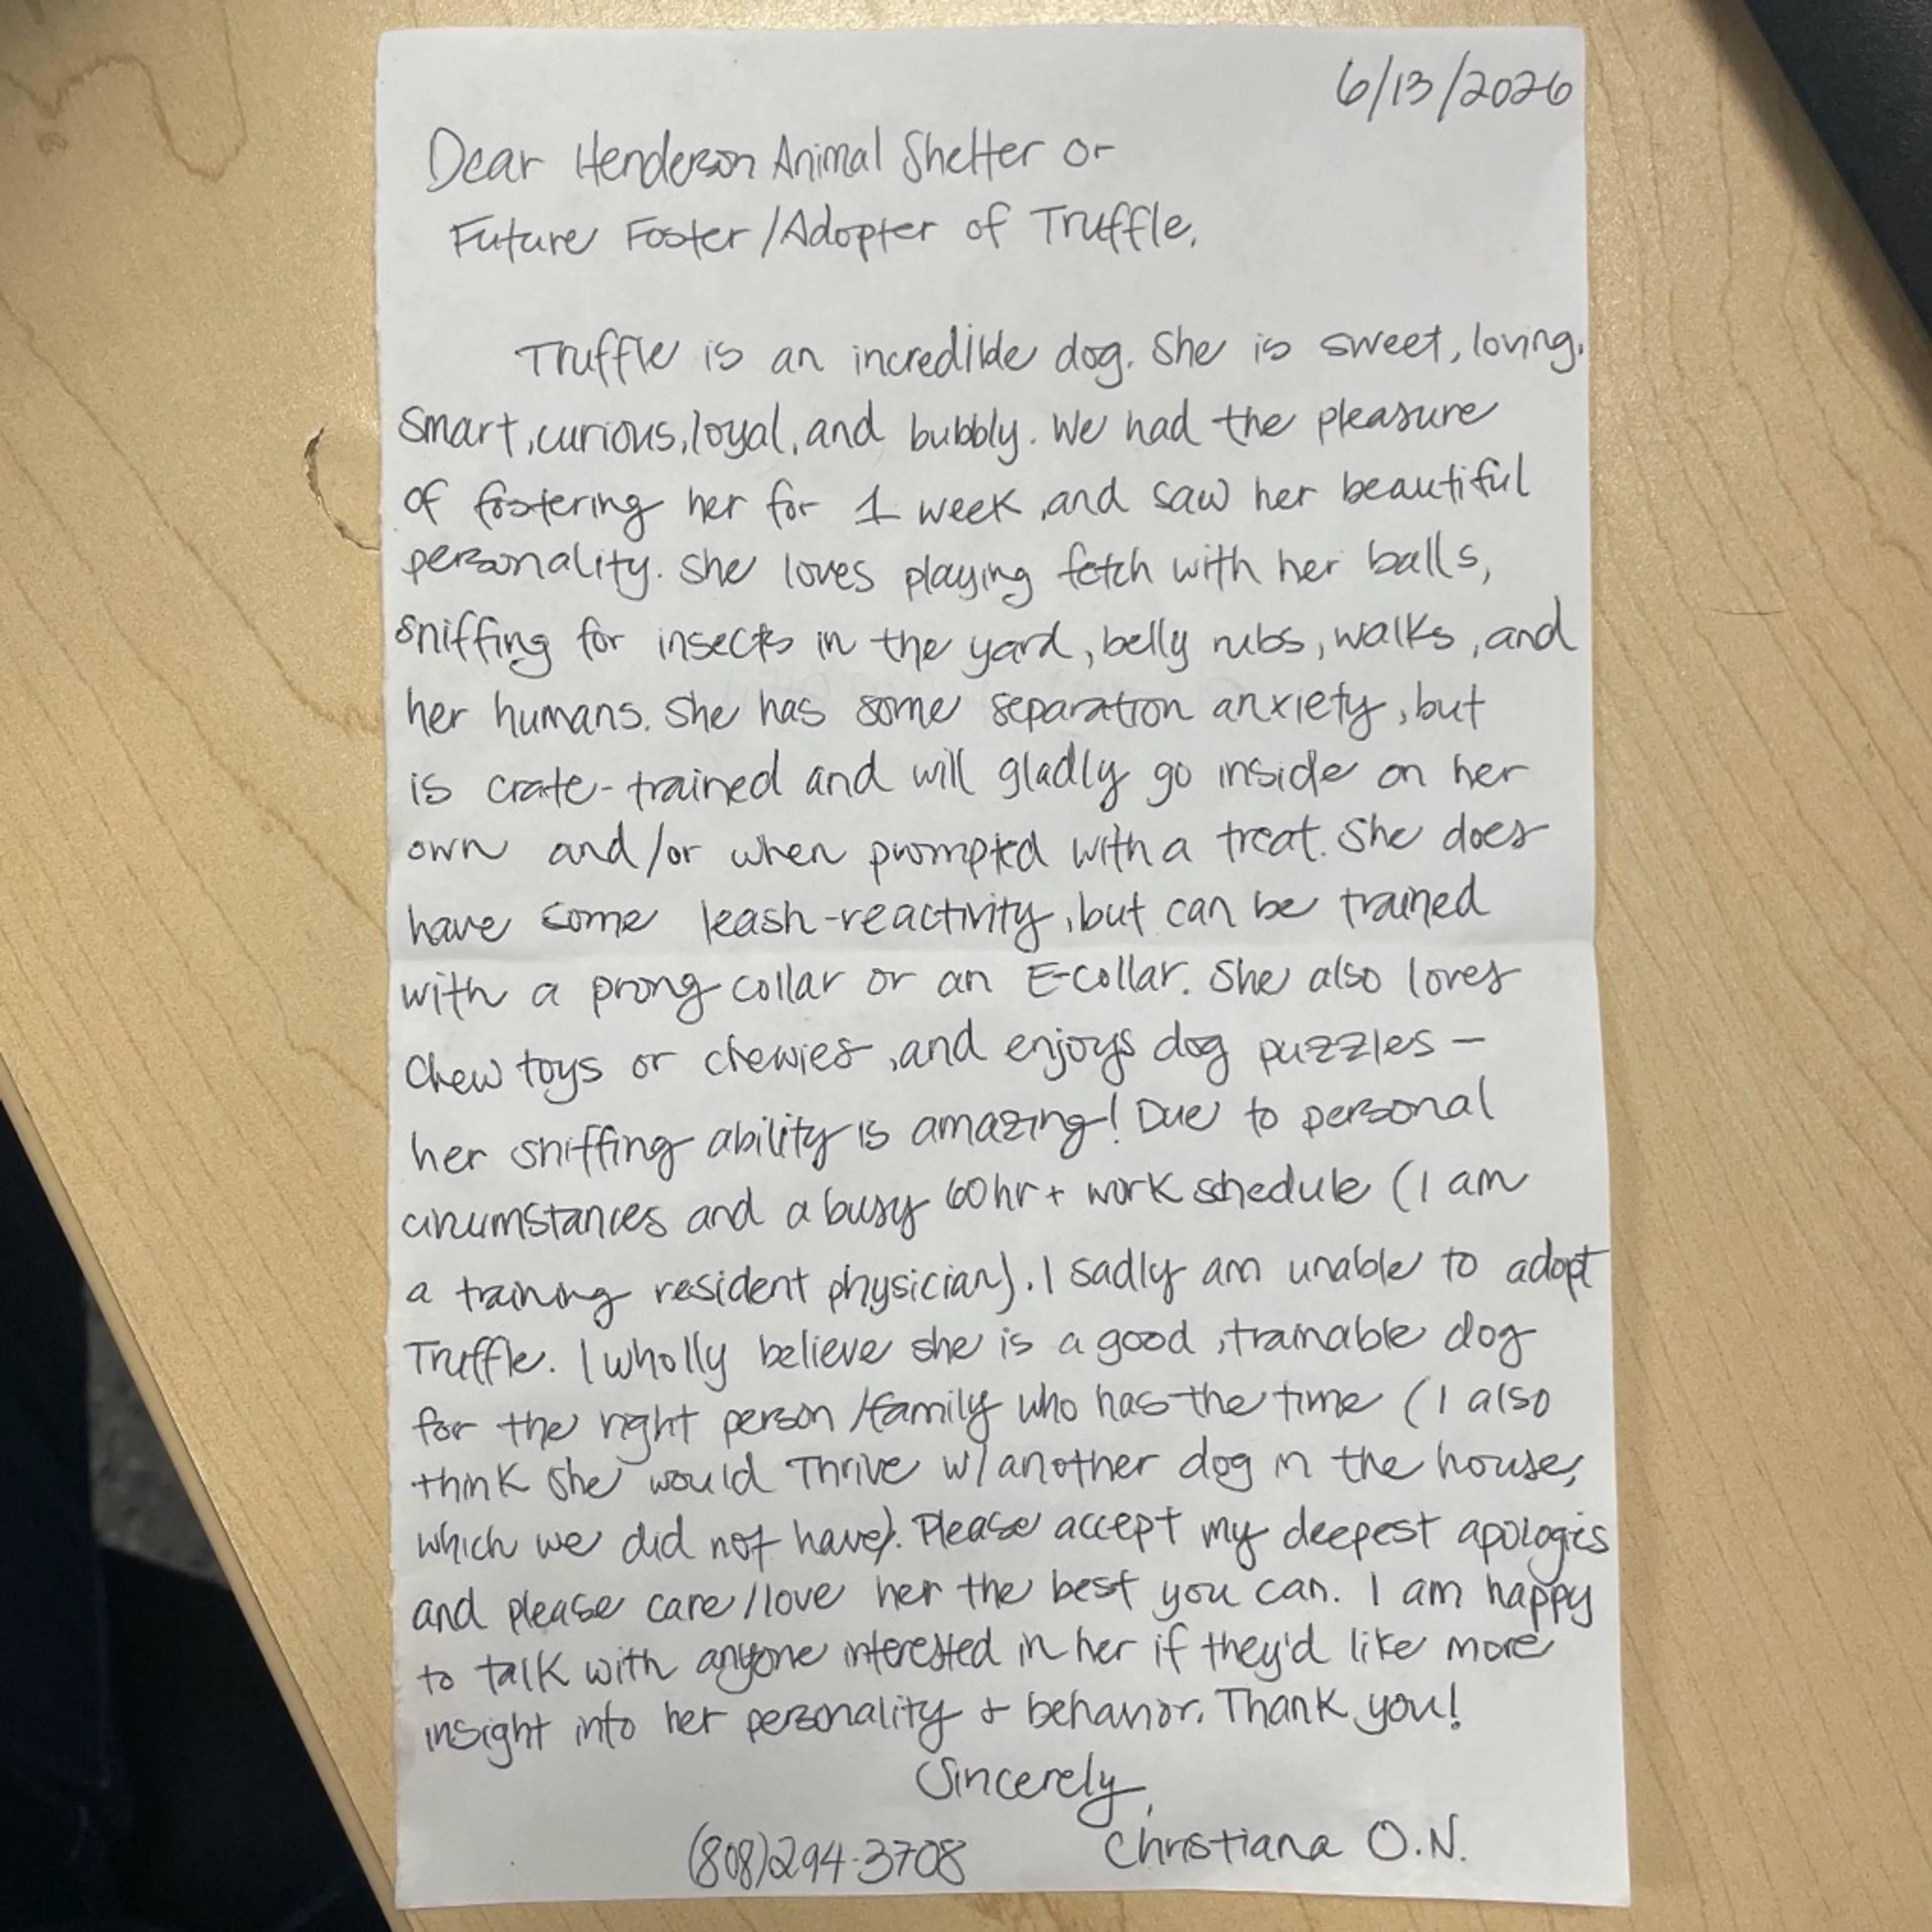 6/13/2026
Dear Henderson Animal Shelter or
Future Foster/Adopter of Truffle,
Truffle is an incredible dog. She is sweet, loving,
smart, curious, loyal, and bubbly. We had the pleasure
of fostering her for 1 week, and saw her beautiful
personality. She loves playing fetch with her balls,
sniffing for insects in the yard, belly rubs, walks, and
her humans. She has some separation anxiety, but
is crate-trained and will gladly go inside on her
own and/or when prompted with a treat. She does
have some leash-reactivity, but can be trained
with a prong collar or an E-collar. She also loves
chew toys or chewies, and enjoys dog puzzles —
her sniffing ability is amazing! Due to personal
circumstances and a busy 60hr+ work schedule (I am
a training resident physician). I sadly am unable to adopt
Truffle. I wholly believe she is a good, trainable dog
for the right person/family who has the time (I also
think she would thrive w/another dog in the house,
which we did not have). Please accept my deepest apologies
and please care/love her the best you can. I am happy
to talk with anyone interested in her if they'd like more
insight into her personality + behavior. Thank you!
Sincerely,
(808)294-3708 Christiana O.N.